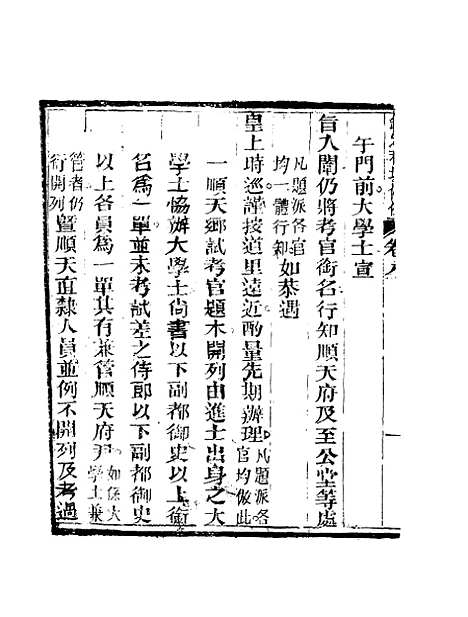 午門前大學士宣
旨入闈仍將考官銜名行知順天府及至公堂等處
凡題派各官均一體行知如恭遇
皇上時巡謹按道里遠近酌量先期辦理凡題派各官均倣此
一順天鄉試考官題本開列由進士出身之大
學士協辦大學士尚書以下副都御史以上銜
名為一單並未考試差之侍郎以下副都御史
以上各員為一單其有兼管順天府尹如係大學士兼
管者仍行開列暨順天直隸人員並例不開列及考過
卷
一